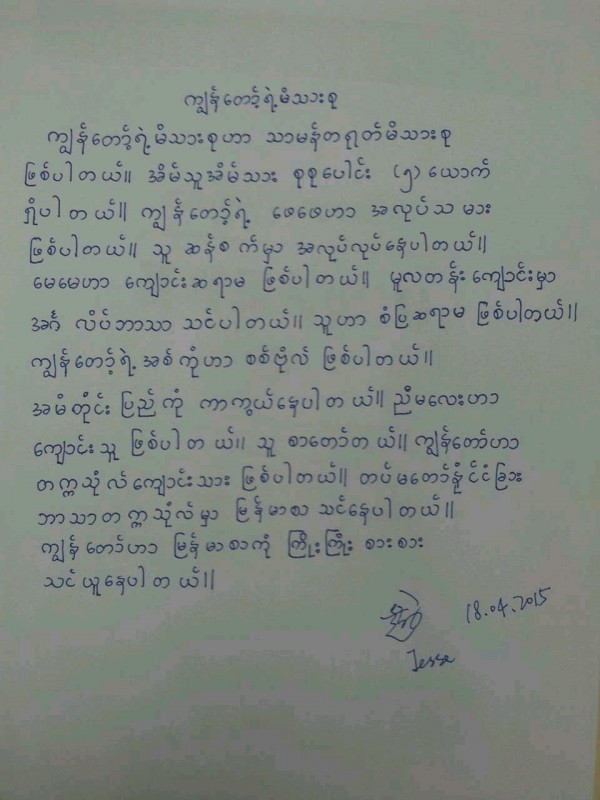 ကျွန်တော့်ရဲ့မိသားစု
ကျွန်တော့်ရဲ့မိသားစုဟာ သာမန်တရုတ်မိသားစု
ဖြစ်ပါတယ်။ အိမ်သူအိမ်သား စုစုပေါင်း (၅) ယောက်
ရှိပါတယ်။ ကျွန်တော့်ရဲ့ ဖေဖေဟာ အလုပ်သမား
ဖြစ်ပါတယ်။ သူ ဆန်စက်မှာ အလုပ်လုပ်နေပါတယ်။
မေမေဟာ ကျောင်းဆရာမ ဖြစ်ပါတယ်။ မူလတန်းကျောင်းမှာ
အင်္ဂလိပ်ဘာသာ သင်ပါတယ်။ သူဟာ စံပြဆရာမ ဖြစ်ပါတယ်။
ကျွန်တော့်ရဲ့ အစ်ကိုဟာ စစ်ဗိုလ် ဖြစ်ပါတယ်။
အမိတိုင်းပြည်ကို ကာကွယ်နေပါတယ်။ ညီမလေးဟာ
ကျောင်းသူ ဖြစ်ပါတယ်။ သူ စာတော်တယ်။ ကျွန်တော်ဟာ
တက္ကသိုလ်ကျောင်းသား ဖြစ်ပါတယ်။ တပ်မတော်နိုင်ငံခြား
ဘာသာတက္ကသိုလ်မှာ မြန်မာစာ သင်နေပါတယ်။
ကျွန်တော်ဟာ မြန်မာစာကို ကြိုးကြိုး စားစား
သင်ယူနေပါတယ်။
18.04.2015
Jesse